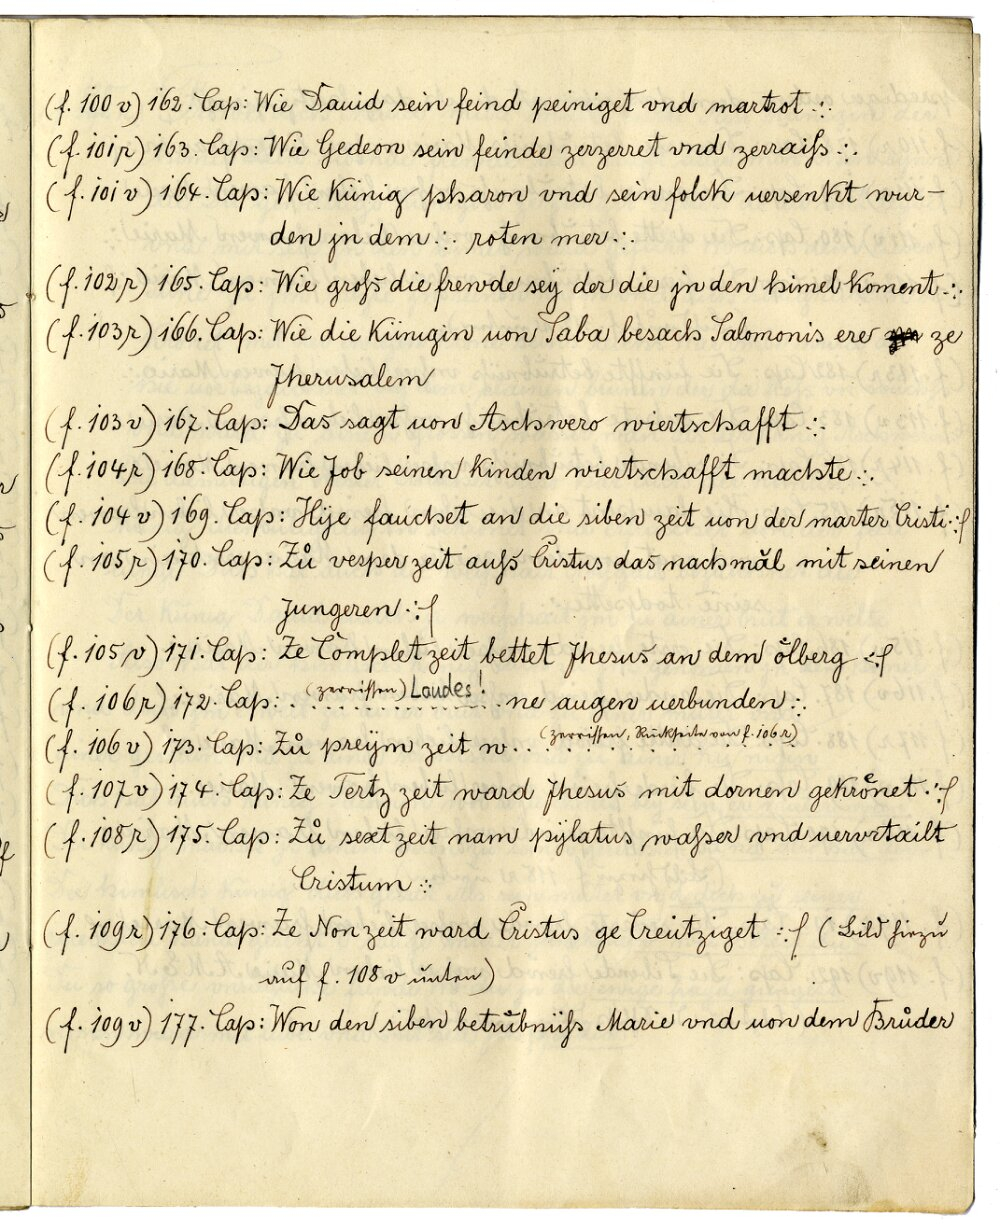 (f. 100 v) 162. Cap: Wie Dauid sein feind peiniget vnd martrot .:.
(f. 101 r) 163. Cap: Wie Gedeon sein feinde zerzerret vnd zerraiſs .:.
(f. 101 v) 164. Cap: Wie Künig pharon vnd sein folck uersenkt wur-
den jn dem .:. roten mer .:.
(f. 102 r) 165. Cap: Wie groſs die frewde sey der die jn den himel koment .:.
(f. 103 r) 166. Cap: Wie die Künigin uon Saba besach Salomonis ere ze
Jherusalem
(f. 103 v) 167. Cap: Das sagt uon Aschwero wiertschafft .:.
(f. 104 r) 168. Cap: Wie Job seinen kinden wiertschafft machte .:.
(f. 104 v) 169. Cap: Hije fauchet an die siben zeit uon der marter Cristi .:ſ
(f. 105 r) 170. Cap: Zů vesper zeit auſs Cristus das nachmăl mit seinen
Jungeren .:ſ
(f. 105 v) 171. Cap: Ze Complet zeit bettet Jhesus an dem ölberg .:ſ
(f. 106 r) 172. Cap: . (zerriſſen) Laudes! . . . . ne augen uerbunden .:.
(f. 106 v) 173. Cap: Zů preÿm zeit w . . (zerriſſen, Rückſeite von f. 106 r)
(f. 107 v) 174. Cap: Ze Tertz zeit ward Jhesus mit dornen gekrönet .:ſ
(f. 108 r) 175. Cap: Zů sext zeit nam pÿlatus waſser vnd uervrtailt
Cristum .:.
(f. 109 r) 176. Cap: Ze Non zeit ward Cristus ge Creütziget .:ſ (Bild hiezu
auf f. 108 v unten)
(f. 109 v) 177. Cap: Won den siben betrůbnüſs Marie vnd uon dem Brůder